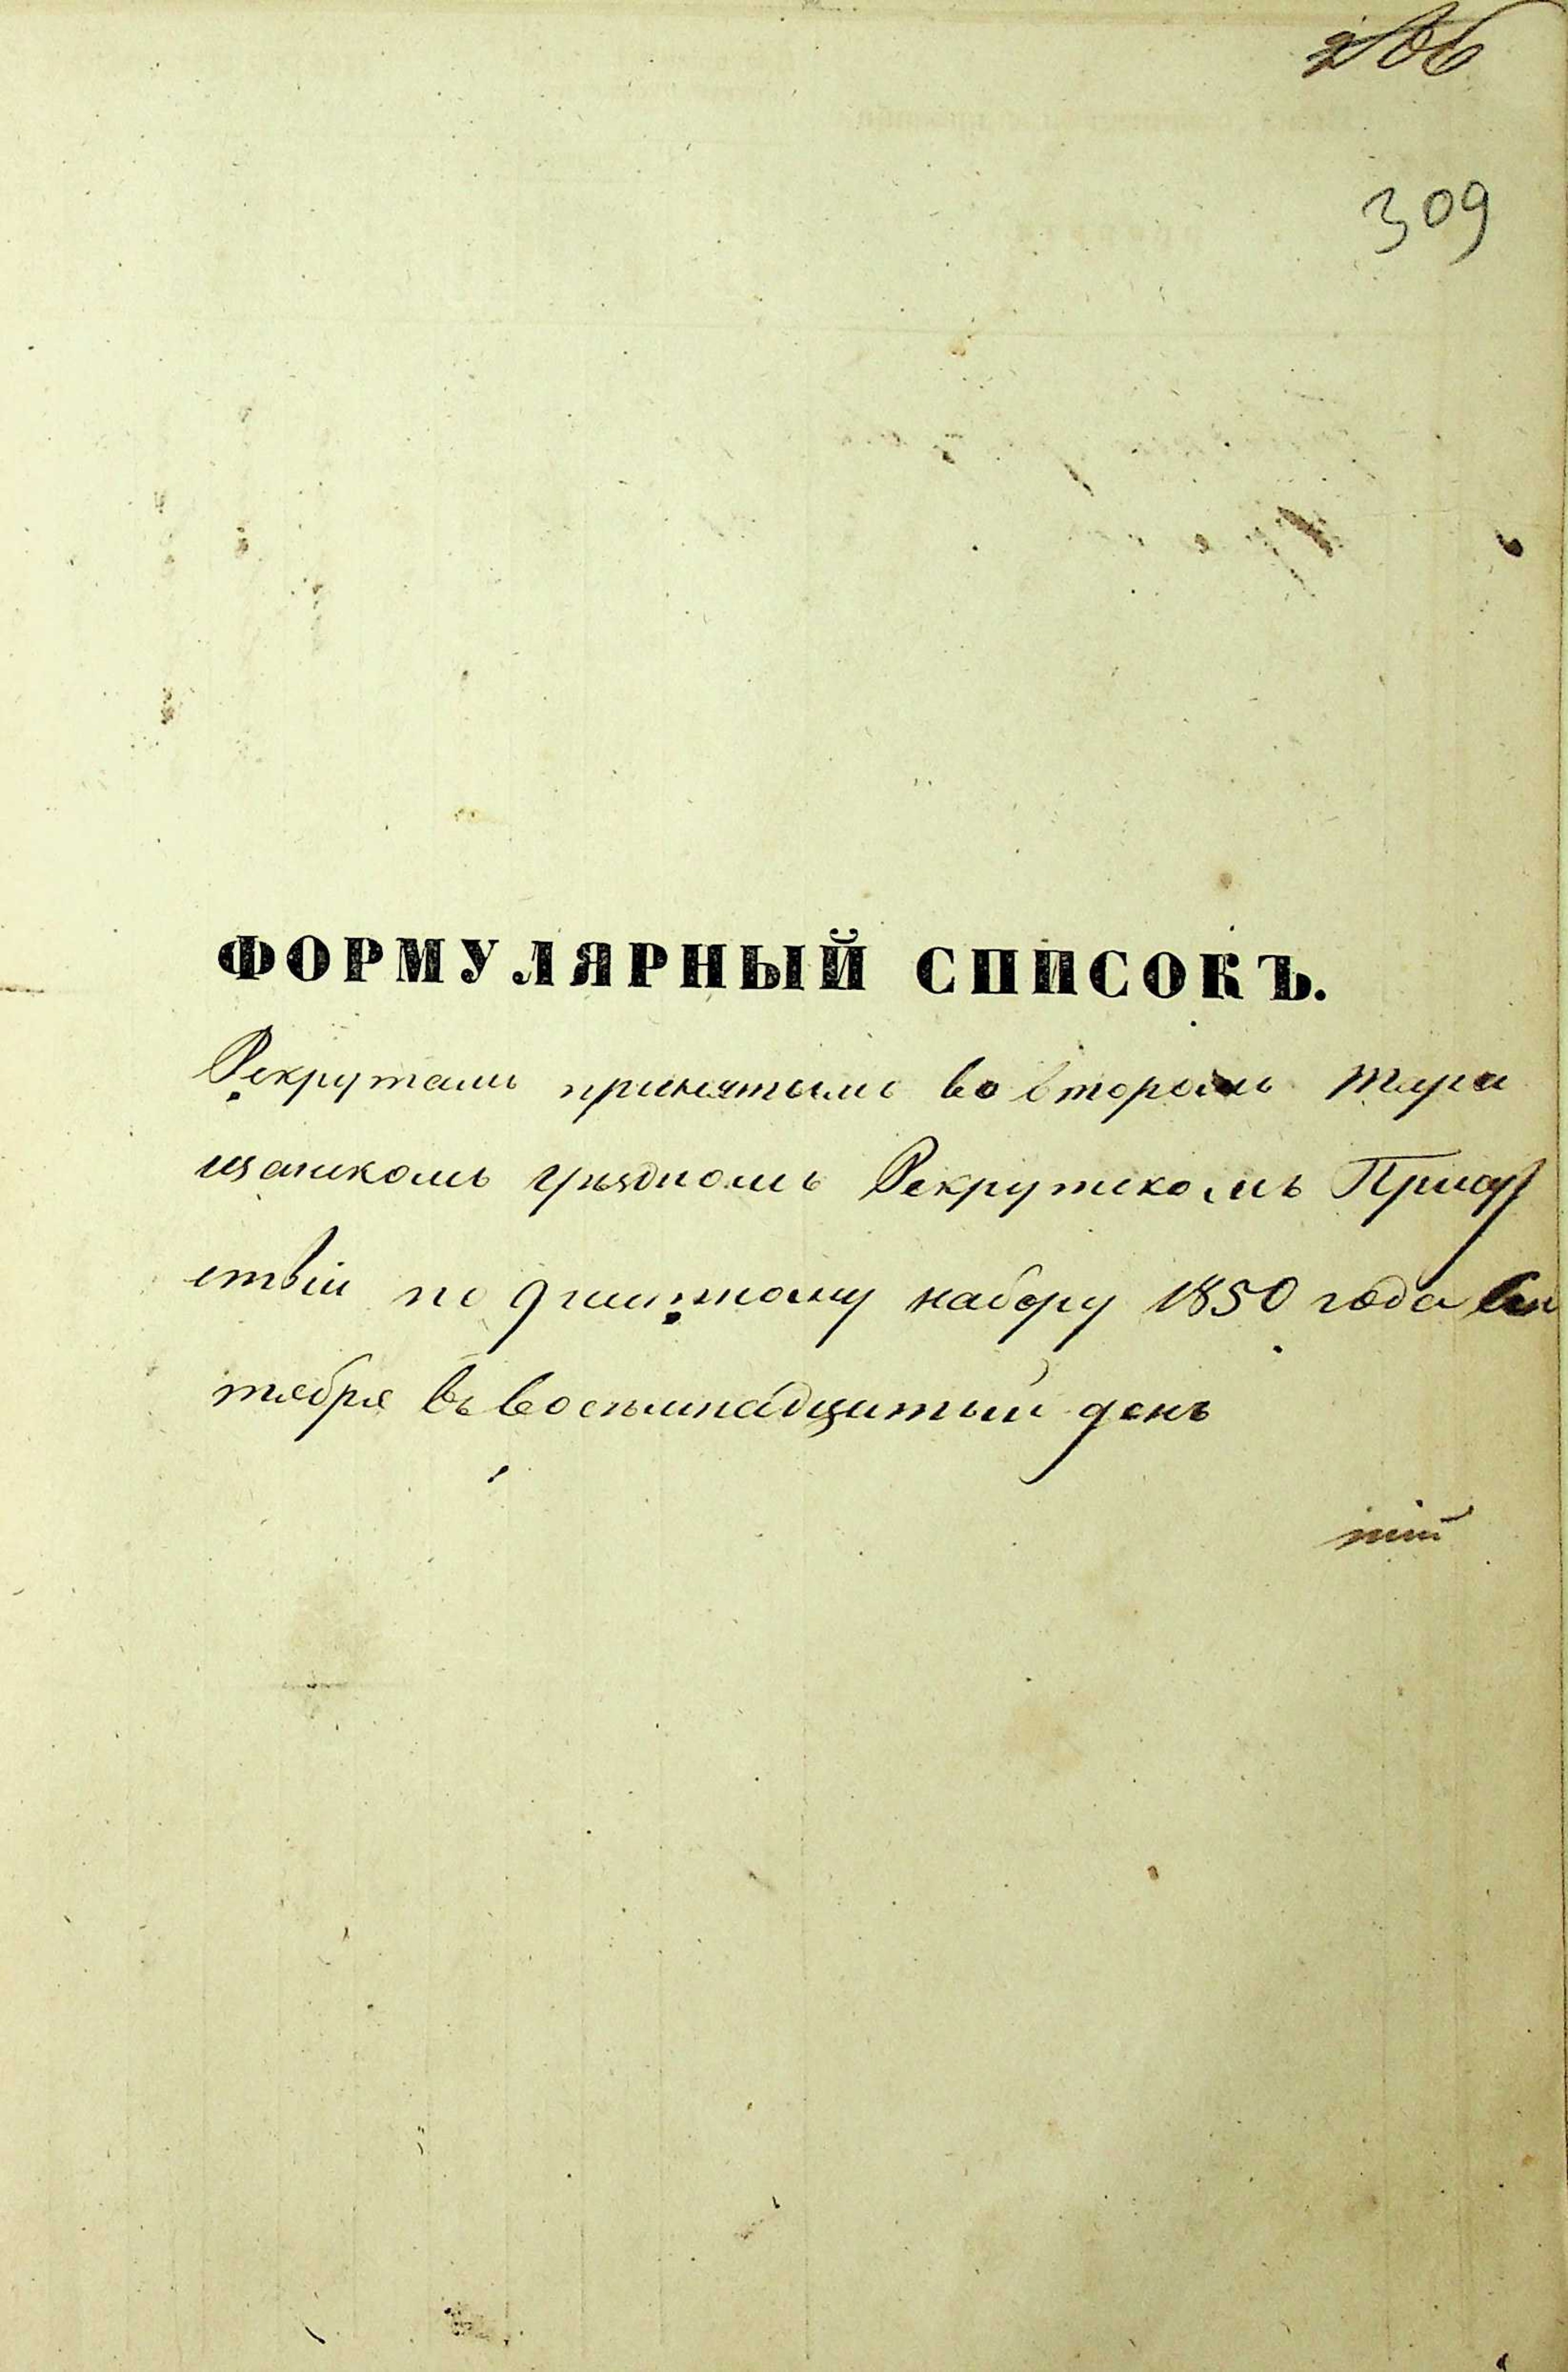 309
ФОРМУЛЯРНЫЙ СПИСОКЪ.
Рекрутамъ принятымъ во второмъ Тара
щанскомъ уѣздномъ Рекрутскомъ Присут
ствіи по 9 частному набору 1850 года Сен
тября въ восемнадцатый день